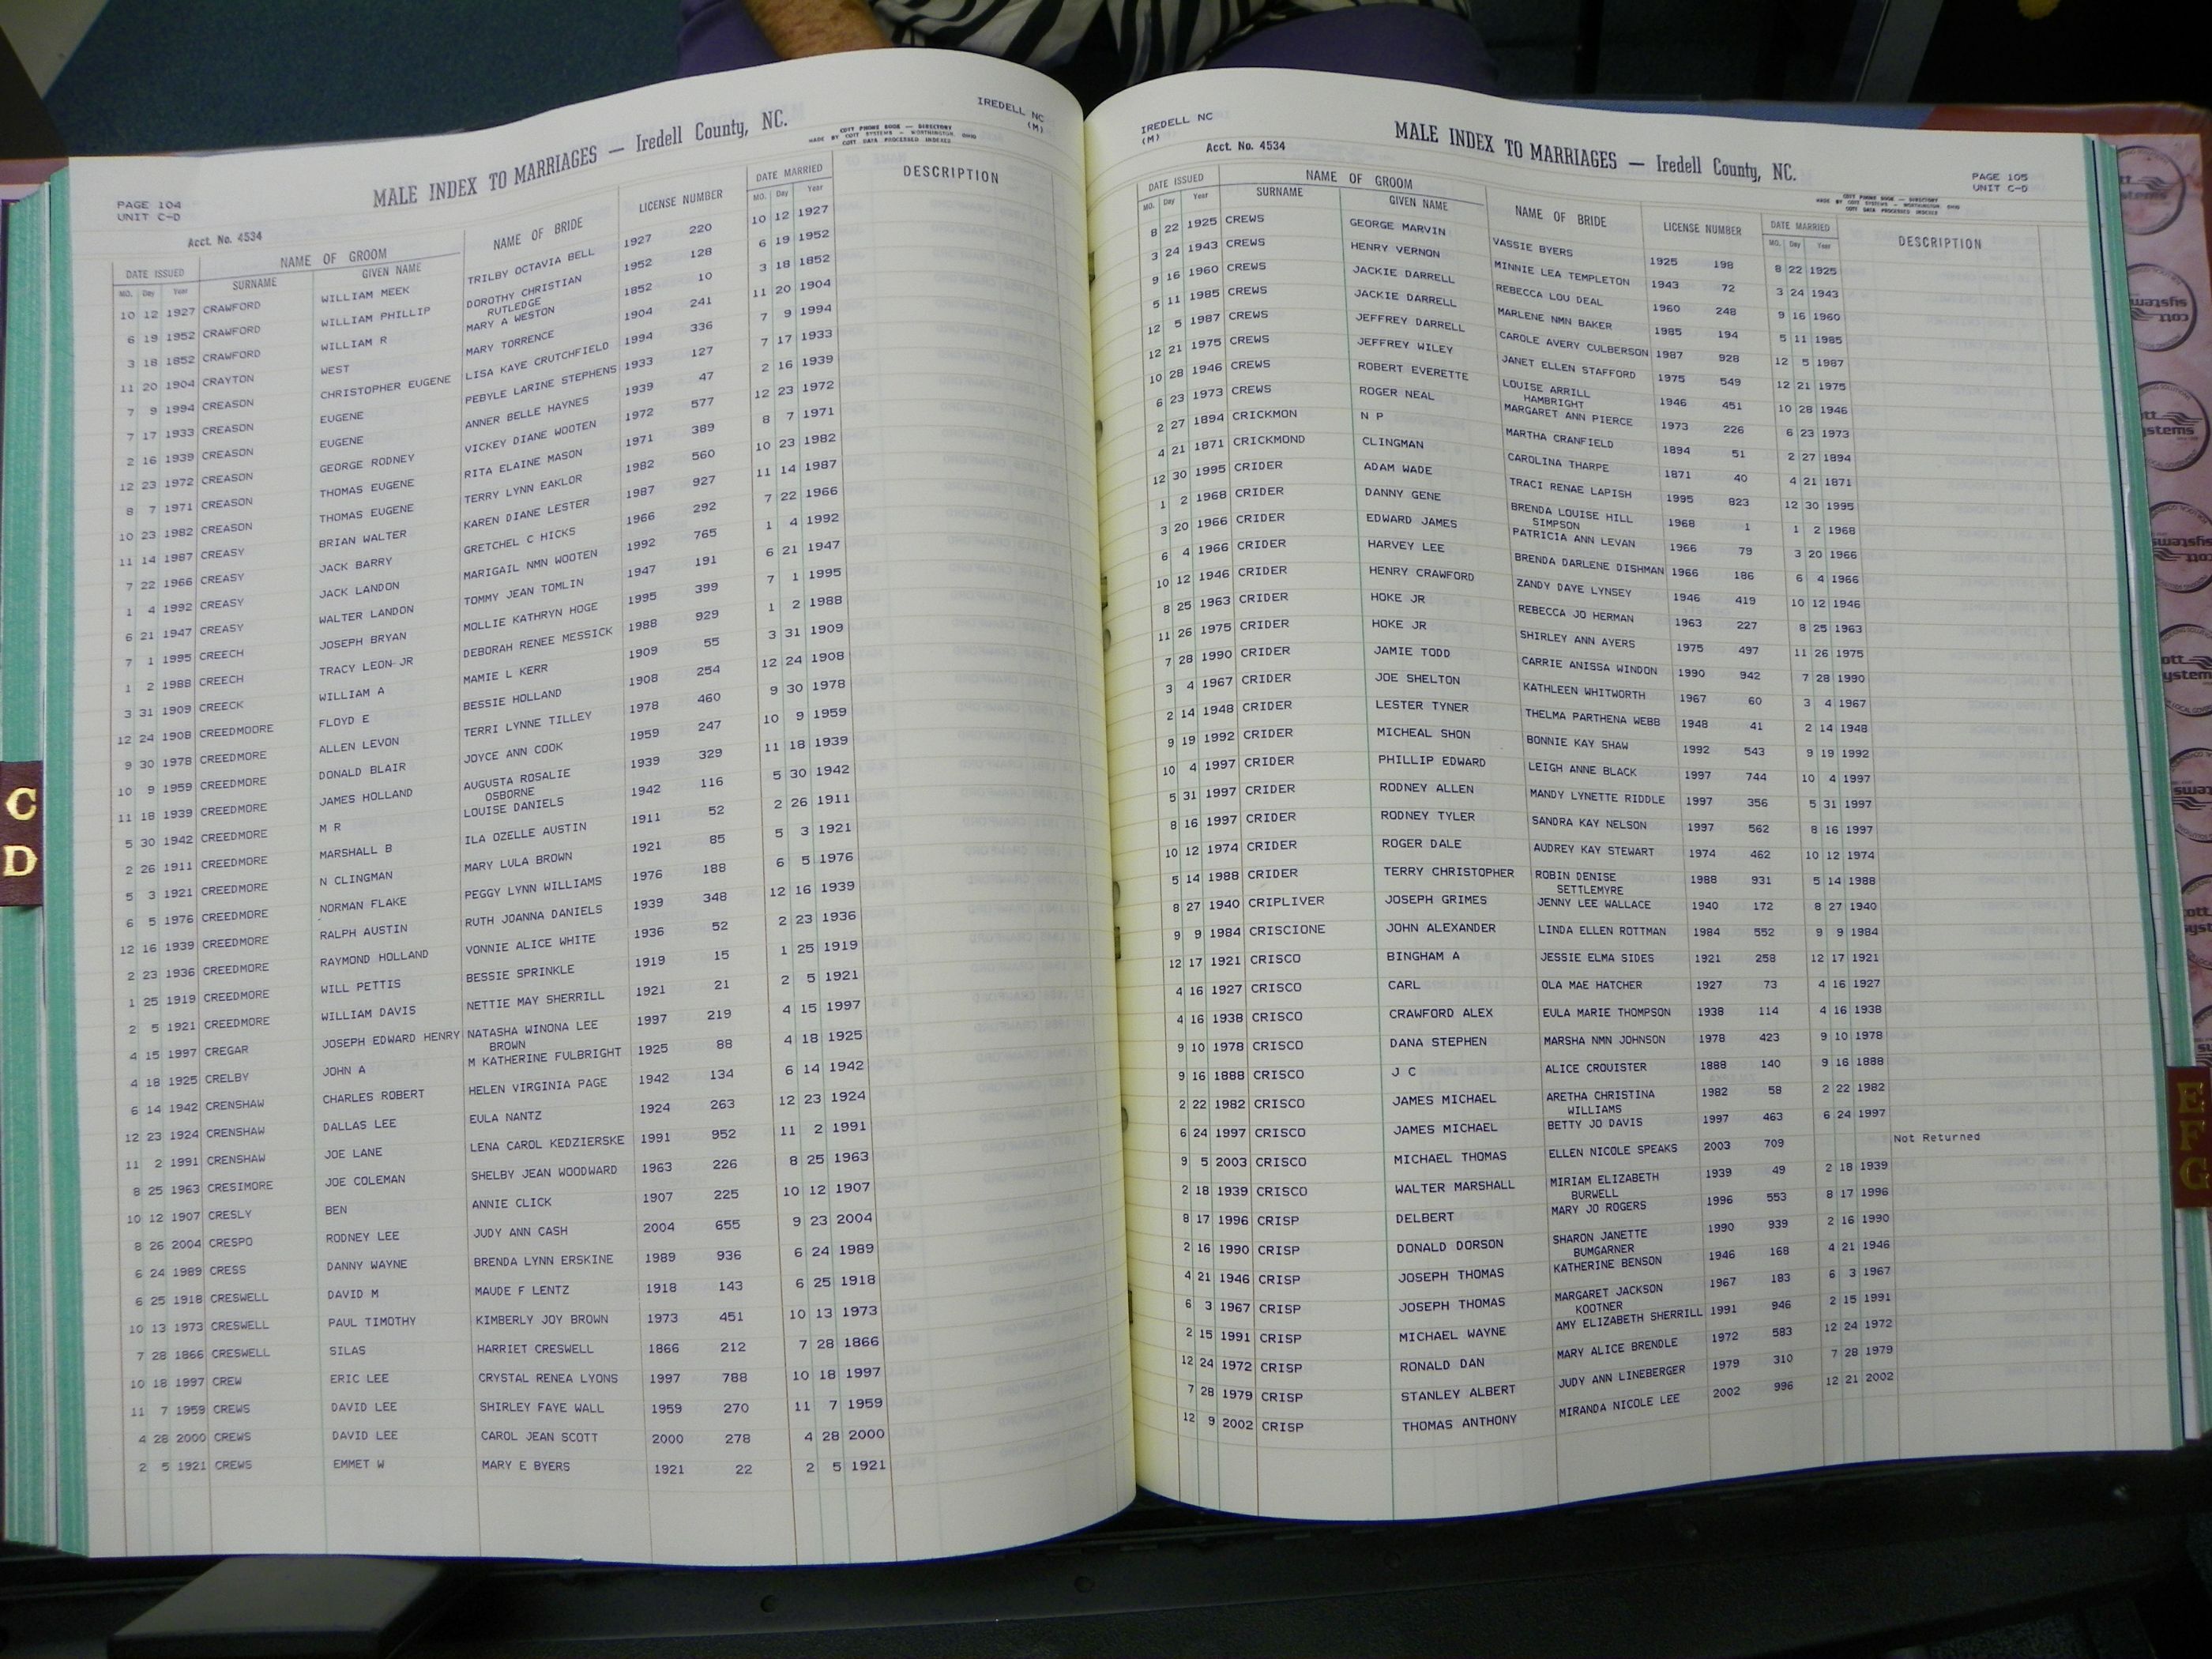 IREDELL NC
(M)
MALE INDEX TO MARRIAGES — Iredell County, NC.
COTT PHONE BOOK — DIRECTORY
MADE BY COTT SYSTEMS — WORTHINGTON, OHIO
COTT DATA PROCESSED INDEXES
PAGE 104
UNIT C-D
Acct. No. 4534
DATE ISSUED NAME OF GROOM NAME OF BRIDE LICENSE NUMBER DATE MARRIED DESCRIPTION
MO. Day Year SURNAME GIVEN NAME MO. Day Year
10 12 1927 CRAWFORD WILLIAM MEEK TRILBY OCTAVIA BELL 1927 220 10 12 1927
6 19 1952 CRAWFORD WILLIAM PHILLIP DOROTHY CHRISTIAN 1952 128 6 19 1952
RUTLEDGE
3 18 1852 CRAWFORD WILLIAM R MARY A WESTON 1852 10 3 18 1852
11 20 1904 CRAYTON WEST MARY TORRENCE 1904 241 11 20 1904
7 9 1994 CREASON CHRISTOPHER EUGENE LISA KAYE CRUTCHFIELD 1994 336 7 9 1994
7 17 1933 CREASON EUGENE PEBYLE LARINE STEPHENS 1933 127 7 17 1933
2 16 1939 CREASON EUGENE ANNER BELLE HAYNES 1939 47 2 16 1939
12 23 1972 CREASON GEORGE RODNEY VICKEY DIANE WOOTEN 1972 577 12 23 1972
8 7 1971 CREASON THOMAS EUGENE RITA ELAINE MASON 1971 389 8 7 1971
10 23 1982 CREASON THOMAS EUGENE TERRY LYNN EAKLOR 1982 560 10 23 1982
11 14 1987 CREASY BRIAN WALTER KAREN DIANE LESTER 1987 927 11 14 1987
7 22 1966 CREASY JACK BARRY GRETCHEL C HICKS 1966 292 7 22 1966
1 4 1992 CREASY JACK LANDON MARIGAIL NMN WOOTEN 1992 765 1 4 1992
6 21 1947 CREASY WALTER LANDON TOMMY JEAN TOMLIN 1947 191 6 21 1947
7 1 1995 CREECH JOSEPH BRYAN MOLLIE KATHRYN HOGE 1995 399 7 1 1995
1 2 1988 CREECH TRACY LEON JR DEBORAH RENEE MESSICK 1988 929 1 2 1988
3 31 1909 CREECK WILLIAM A MAMIE L KERR 1909 55 3 31 1909
12 24 1908 CREEDMOORE FLOYD E BESSIE HOLLAND 1908 254 12 24 1908
9 30 1978 CREEDMORE ALLEN LEVON TERRI LYNNE TILLEY 1978 460 9 30 1978
10 9 1959 CREEDMORE DONALD BLAIR JOYCE ANN COOK 1959 247 10 9 1959
11 18 1939 CREEDMORE JAMES HOLLAND AUGUSTA ROSALIE 1939 329 11 18 1939
OSBORNE
5 30 1942 CREEDMORE M R LOUISE DANIELS 1942 116 5 30 1942
2 26 1911 CREEDMORE MARSHALL B ILA OZELLE AUSTIN 1911 52 2 26 1911
5 3 1921 CREEDMORE N CLINGMAN MARY LULA BROWN 1921 85 5 3 1921
6 5 1976 CREEDMORE NORMAN FLAKE PEGGY LYNN WILLIAMS 1976 188 6 5 1976
12 16 1939 CREEDMORE RALPH AUSTIN RUTH JOANNA DANIELS 1939 348 12 16 1939
2 23 1936 CREEDMORE RAYMOND HOLLAND VONNIE ALICE WHITE 1936 52 2 23 1936
1 25 1919 CREEDMORE WILL PETTIS BESSIE SPRINKLE 1919 15 1 25 1919
2 5 1921 CREEDMORE WILLIAM DAVIS NETTIE MAY SHERRILL 1921 21 2 5 1921
4 15 1997 CREGAR JOSEPH EDWARD HENRY NATASHA WINONA LEE 1997 219 4 15 1997
BROWN
4 18 1925 CRELBY JOHN A M KATHERINE FULBRIGHT 1925 88 4 18 1925
6 14 1942 CRENSHAW CHARLES ROBERT HELEN VIRGINIA PAGE 1942 134 6 14 1942
12 23 1924 CRENSHAW DALLAS LEE EULA NANTZ 1924 263 12 23 1924
11 2 1991 CRENSHAW JOE LANE LENA CAROL KEDZIERSKE 1991 952 11 2 1991
8 25 1963 CRESIMORE JOE COLEMAN SHELBY JEAN WOODWARD 1963 226 8 25 1963
10 12 1907 CRESLY BEN ANNIE CLICK 1907 225 10 12 1907
8 26 2004 CRESPO RODNEY LEE JUDY ANN CASH 2004 655 9 23 2004
6 24 1989 CRESS DANNY WAYNE BRENDA LYNN ERSKINE 1989 936 6 24 1989
6 25 1918 CRESWELL DAVID M MAUDE F LENTZ 1918 143 6 25 1918
10 13 1973 CRESWELL PAUL TIMOTHY KIMBERLY JOY BROWN 1973 451 10 13 1973
7 28 1866 CRESWELL SILAS HARRIET CRESWELL 1866 212 7 28 1866
10 18 1997 CREW ERIC LEE CRYSTAL RENEA LYONS 1997 788 10 18 1997
11 7 1959 CREWS DAVID LEE SHIRLEY FAYE WALL 1959 270 11 7 1959
4 28 2000 CREWS DAVID LEE CAROL JEAN SCOTT 2000 278 4 28 2000
2 5 1921 CREWS EMMET W MARY E BYERS 1921 22 2 5 1921
C
D
IREDELL NC
(M)
Acct. No. 4534
MALE INDEX TO MARRIAGES — Iredell County, NC.
PAGE 105
UNIT C-D
COTT PHONE BOOK — DIRECTORY
MADE BY COTT SYSTEMS — WORTHINGTON, OHIO
COTT DATA PROCESSED INDEXES
DATE ISSUED NAME OF GROOM NAME OF BRIDE LICENSE NUMBER DATE MARRIED DESCRIPTION
MO. Day Year SURNAME GIVEN NAME MO. Day Year
8 22 1925 CREWS GEORGE MARVIN VASSIE BYERS 1925 198 8 22 1925
3 24 1943 CREWS HENRY VERNON MINNIE LEA TEMPLETON 1943 72 3 24 1943
9 16 1960 CREWS JACKIE DARRELL REBECCA LOU DEAL 1960 248 9 16 1960
5 11 1985 CREWS JACKIE DARRELL MARLENE NMN BAKER 1985 194 5 11 1985
12 5 1987 CREWS JEFFREY DARRELL CAROLE AVERY CULBERSON 1987 928 12 5 1987
12 21 1975 CREWS JEFFREY WILEY JANET ELLEN STAFFORD 1975 549 12 21 1975
10 28 1946 CREWS ROBERT EVERETTE LOUISE ARRILL 1946 451 10 28 1946
HAMBRIGHT
6 23 1973 CREWS ROGER NEAL MARGARET ANN PIERCE 1973 226 6 23 1973
2 27 1894 CRICKMON N P MARTHA CRANFIELD 1894 51 2 27 1894
4 21 1871 CRICKMOND CLINGMAN CAROLINA THARPE 1871 40 4 21 1871
12 30 1995 CRIDER ADAM WADE TRACI RENAE LAPISH 1995 823 12 30 1995
1 2 1968 CRIDER DANNY GENE BRENDA LOUISE HILL 1968 1 1 2 1968
SIMPSON
3 20 1966 CRIDER EDWARD JAMES PATRICIA ANN LEVAN 1966 79 3 20 1966
6 4 1966 CRIDER HARVEY LEE BRENDA DARLENE DISHMAN 1966 186 6 4 1966
10 12 1946 CRIDER HENRY CRAWFORD ZANDY DAYE LYNSEY 1946 419 10 12 1946
8 25 1963 CRIDER HOKE JR REBECCA JO HERMAN 1963 227 8 25 1963
11 26 1975 CRIDER HOKE JR SHIRLEY ANN AYERS 1975 497 11 26 1975
7 28 1990 CRIDER JAMIE TODD CARRIE ANISSA WINDON 1990 942 7 28 1990
3 4 1967 CRIDER JOE SHELTON KATHLEEN WHITWORTH 1967 60 3 4 1967
2 14 1948 CRIDER LESTER TYNER THELMA PARTHENA WEBB 1948 41 2 14 1948
9 19 1992 CRIDER MICHEAL SHON BONNIE KAY SHAW 1992 543 9 19 1992
10 4 1997 CRIDER PHILLIP EDWARD LEIGH ANNE BLACK 1997 744 10 4 1997
5 31 1997 CRIDER RODNEY ALLEN MANDY LYNETTE RIDDLE 1997 356 5 31 1997
8 16 1997 CRIDER RODNEY TYLER SANDRA KAY NELSON 1997 562 8 16 1997
10 12 1974 CRIDER ROGER DALE AUDREY KAY STEWART 1974 462 10 12 1974
5 14 1988 CRIDER TERRY CHRISTOPHER ROBIN DENISE 1988 931 5 14 1988
SETTLEMYRE
8 27 1940 CRIPLIVER JOSEPH GRIMES JENNY LEE WALLACE 1940 172 8 27 1940
9 9 1984 CRISCIONE JOHN ALEXANDER LINDA ELLEN ROTTMAN 1984 552 9 9 1984
12 17 1921 CRISCO BINGHAM A JESSIE ELMA SIDES 1921 258 12 17 1921
4 16 1927 CRISCO CARL OLA MAE HATCHER 1927 73 4 16 1927
4 16 1938 CRISCO CRAWFORD ALEX EULA MARIE THOMPSON 1938 114 4 16 1938
9 10 1978 CRISCO DANA STEPHEN MARSHA NMN JOHNSON 1978 423 9 10 1978
9 16 1888 CRISCO J C ALICE CROUISTER 1888 140 9 16 1888
2 22 1982 CRISCO JAMES MICHAEL ARETHA CHRISTINA 1982 58 2 22 1982
WILLIAMS
6 24 1997 CRISCO JAMES MICHAEL BETTY JO DAVIS 1997 463 6 24 1997
9 5 2003 CRISCO MICHAEL THOMAS ELLEN NICOLE SPEAKS 2003 709 Not Returned
2 18 1939 CRISCO WALTER MARSHALL MIRIAM ELIZABETH 1939 49 2 18 1939
BURWELL
8 17 1996 CRISP DELBERT MARY JO ROGERS 1996 553 8 17 1996
2 16 1990 CRISP DONALD DORSON SHARON JANETTE 1990 939 2 16 1990
BUMGARNER
4 21 1946 CRISP JOSEPH THOMAS KATHERINE BENSON 1946 168 4 21 1946
6 3 1967 CRISP JOSEPH THOMAS MARGARET JACKSON 1967 183 6 3 1967
KOOTNER
2 15 1991 CRISP MICHAEL WAYNE AMY ELIZABETH SHERRILL 1991 946 2 15 1991
12 24 1972 CRISP RONALD DAN MARY ALICE BRENDLE 1972 583 12 24 1972
7 28 1979 CRISP STANLEY ALBERT JUDY ANN LINEBERGER 1979 310 7 28 1979
12 9 2002 CRISP THOMAS ANTHONY MIRANDA NICOLE LEE 2002 996 12 21 2002
E
F
G